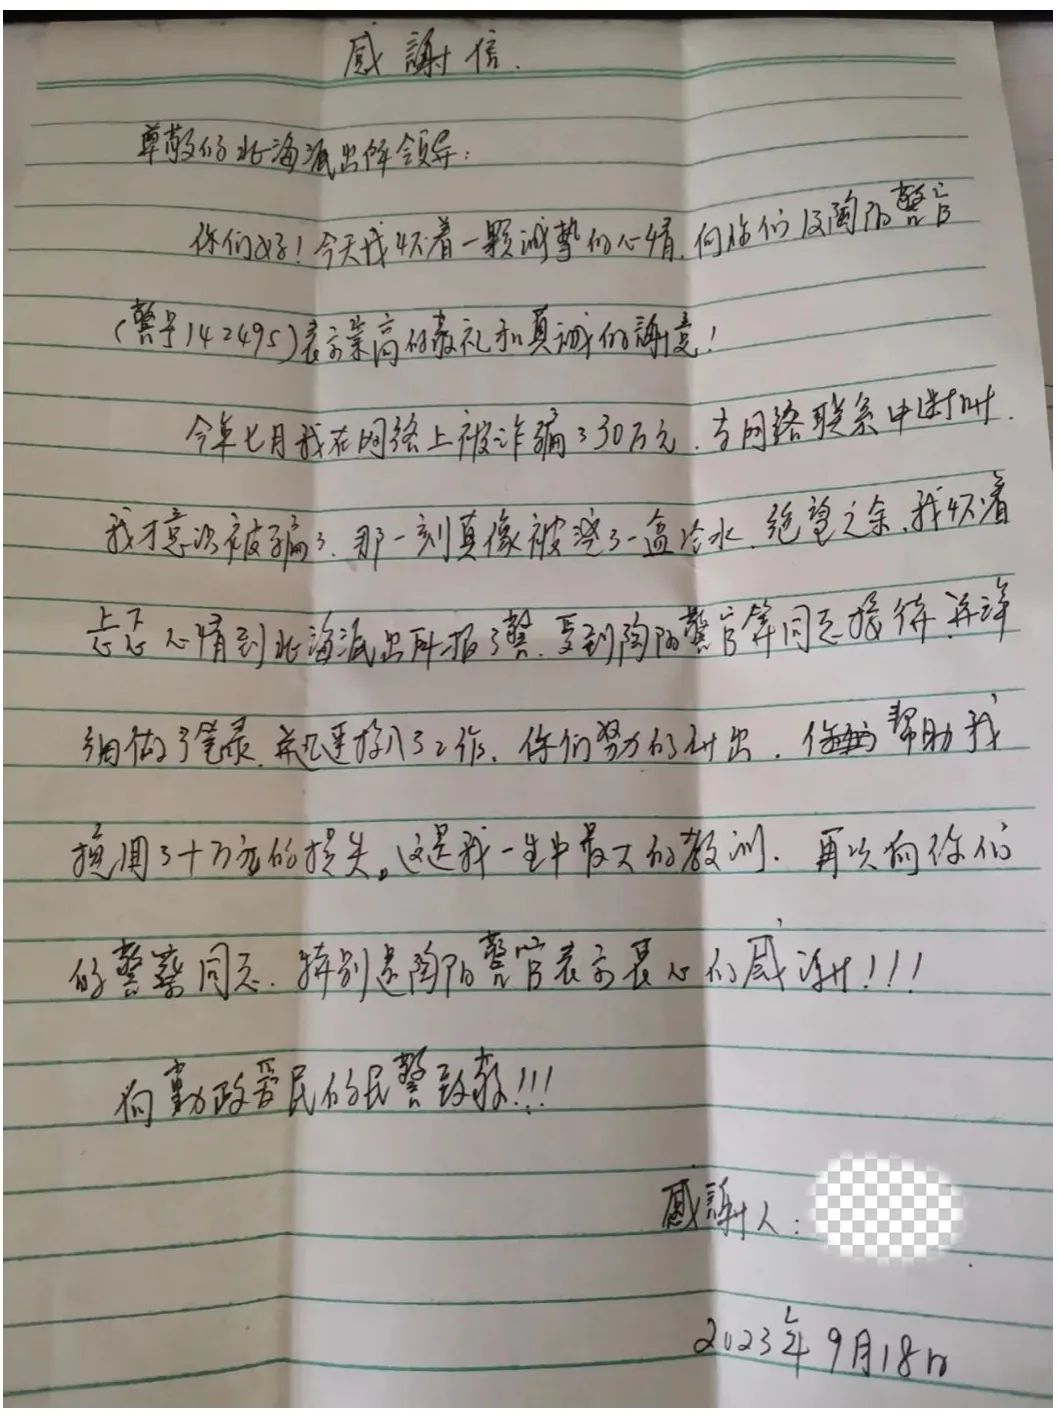 感謝信.
尊敬的北海派出所领导:
你们好!今天我怀着一颗诚挚的心情,向你们及陶阳警官
(警号142495)表示崇高的敬礼和真诚的謝意!
今年七月我在网络上被诈骗了30万元.当网络联系中断时.
我才意识被骗了.那一刻真像被浇了一盆冷水.绝望之余.我怀着
忐忑心情到北海派出所报了警.受到陶阳警官等同志接待.并详
细做了笔录.并迅速投入了工作.你们努力的付出.帮助我
挽回了十万元的损失。这是我一生中最大的教训.再次向你们
的警察同志.特别是陶阳警官表示衷心的感谢!!!
向勤政爱民的民警致敬!!!
感謝人:
2023年9月18日